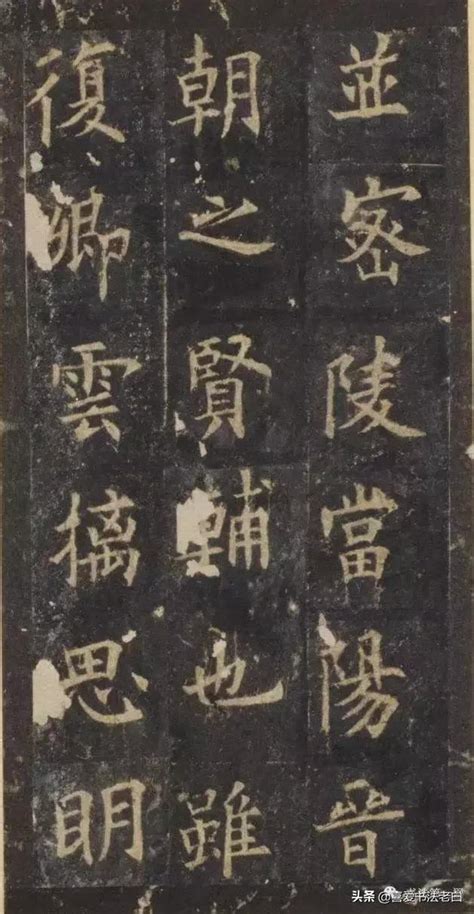 並密陵當陽晉
朝之賢輔也雖
復卿雲摛思明
头条 @喜爱书法老白